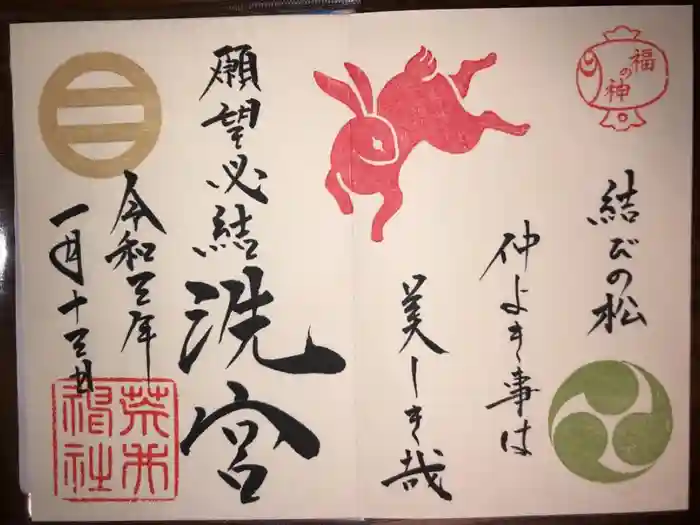 福の神
結びの松
仲よき事は
美しき哉
願望必結
洗宮
令和三年
一月十三日
荒井神社